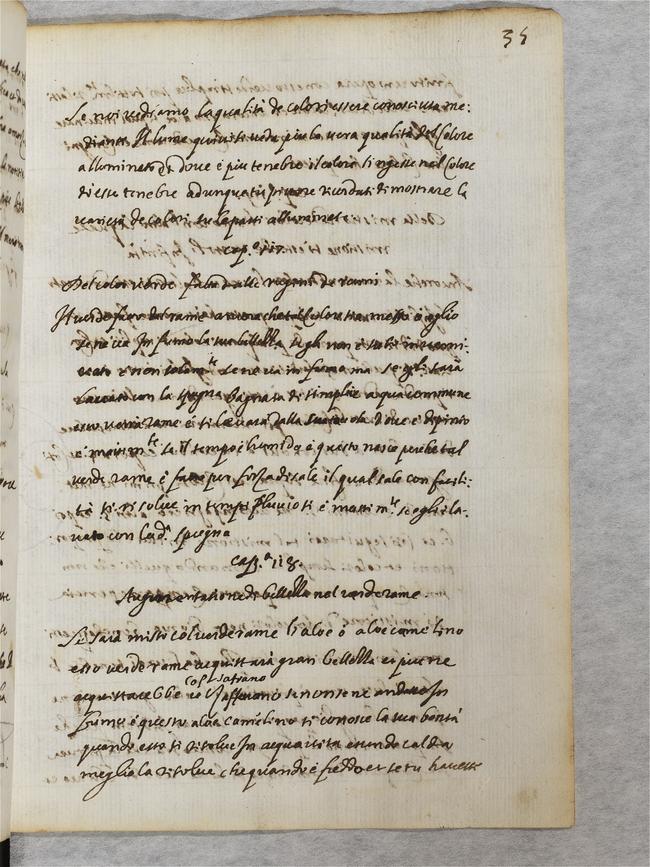 35
Se noi vediamo la qualità de colori essere conosciuta me:
diante Il lume quivi si veda piu la vera qualità del Colore
alluminato et dove è piu tenebre il colore si tinge nel Colore
di esse tenebre adunque tu pittore ricordati di mostrare la
varietà de colori su le parti alluminate
cap.º 117.
Del color verde fatto dalla rugine de rami
Il verde fatto dal rame ancora che tal Colore sia messo a oglio
se ne va In fumo la sua bellezza se gli non è subito inverni:
cato è non solam.te se ne va in fumo ma se egli sarà
lavato con la spugna bagnata di simplice aqua commune
esso verderame si si levarà dalla sua tavola dove è dipinto
è massim.te se il tempo è humido è questo nasce perche tal
verde rame è fatto per forza di sale il qual sale con facili:
tà si risolve in tempi pluviosi è massim.te se egli è la:
vato con la d.a spugna
cap.º 118.
Augumentatione di bellezza nel verderame.
Se sarà misto col verderame l'aloe ò aloe camelino
esso verde rame acquistarà gran bellezza et piu ne
col zafrano
acquistarebbe se non se ne andasse In
fumo è questo aloe camelino si conosce la sua bontà
quando esso si risolve In acqua vita essendo calda
meglio la risolve che quando è fredda et se tu havesse